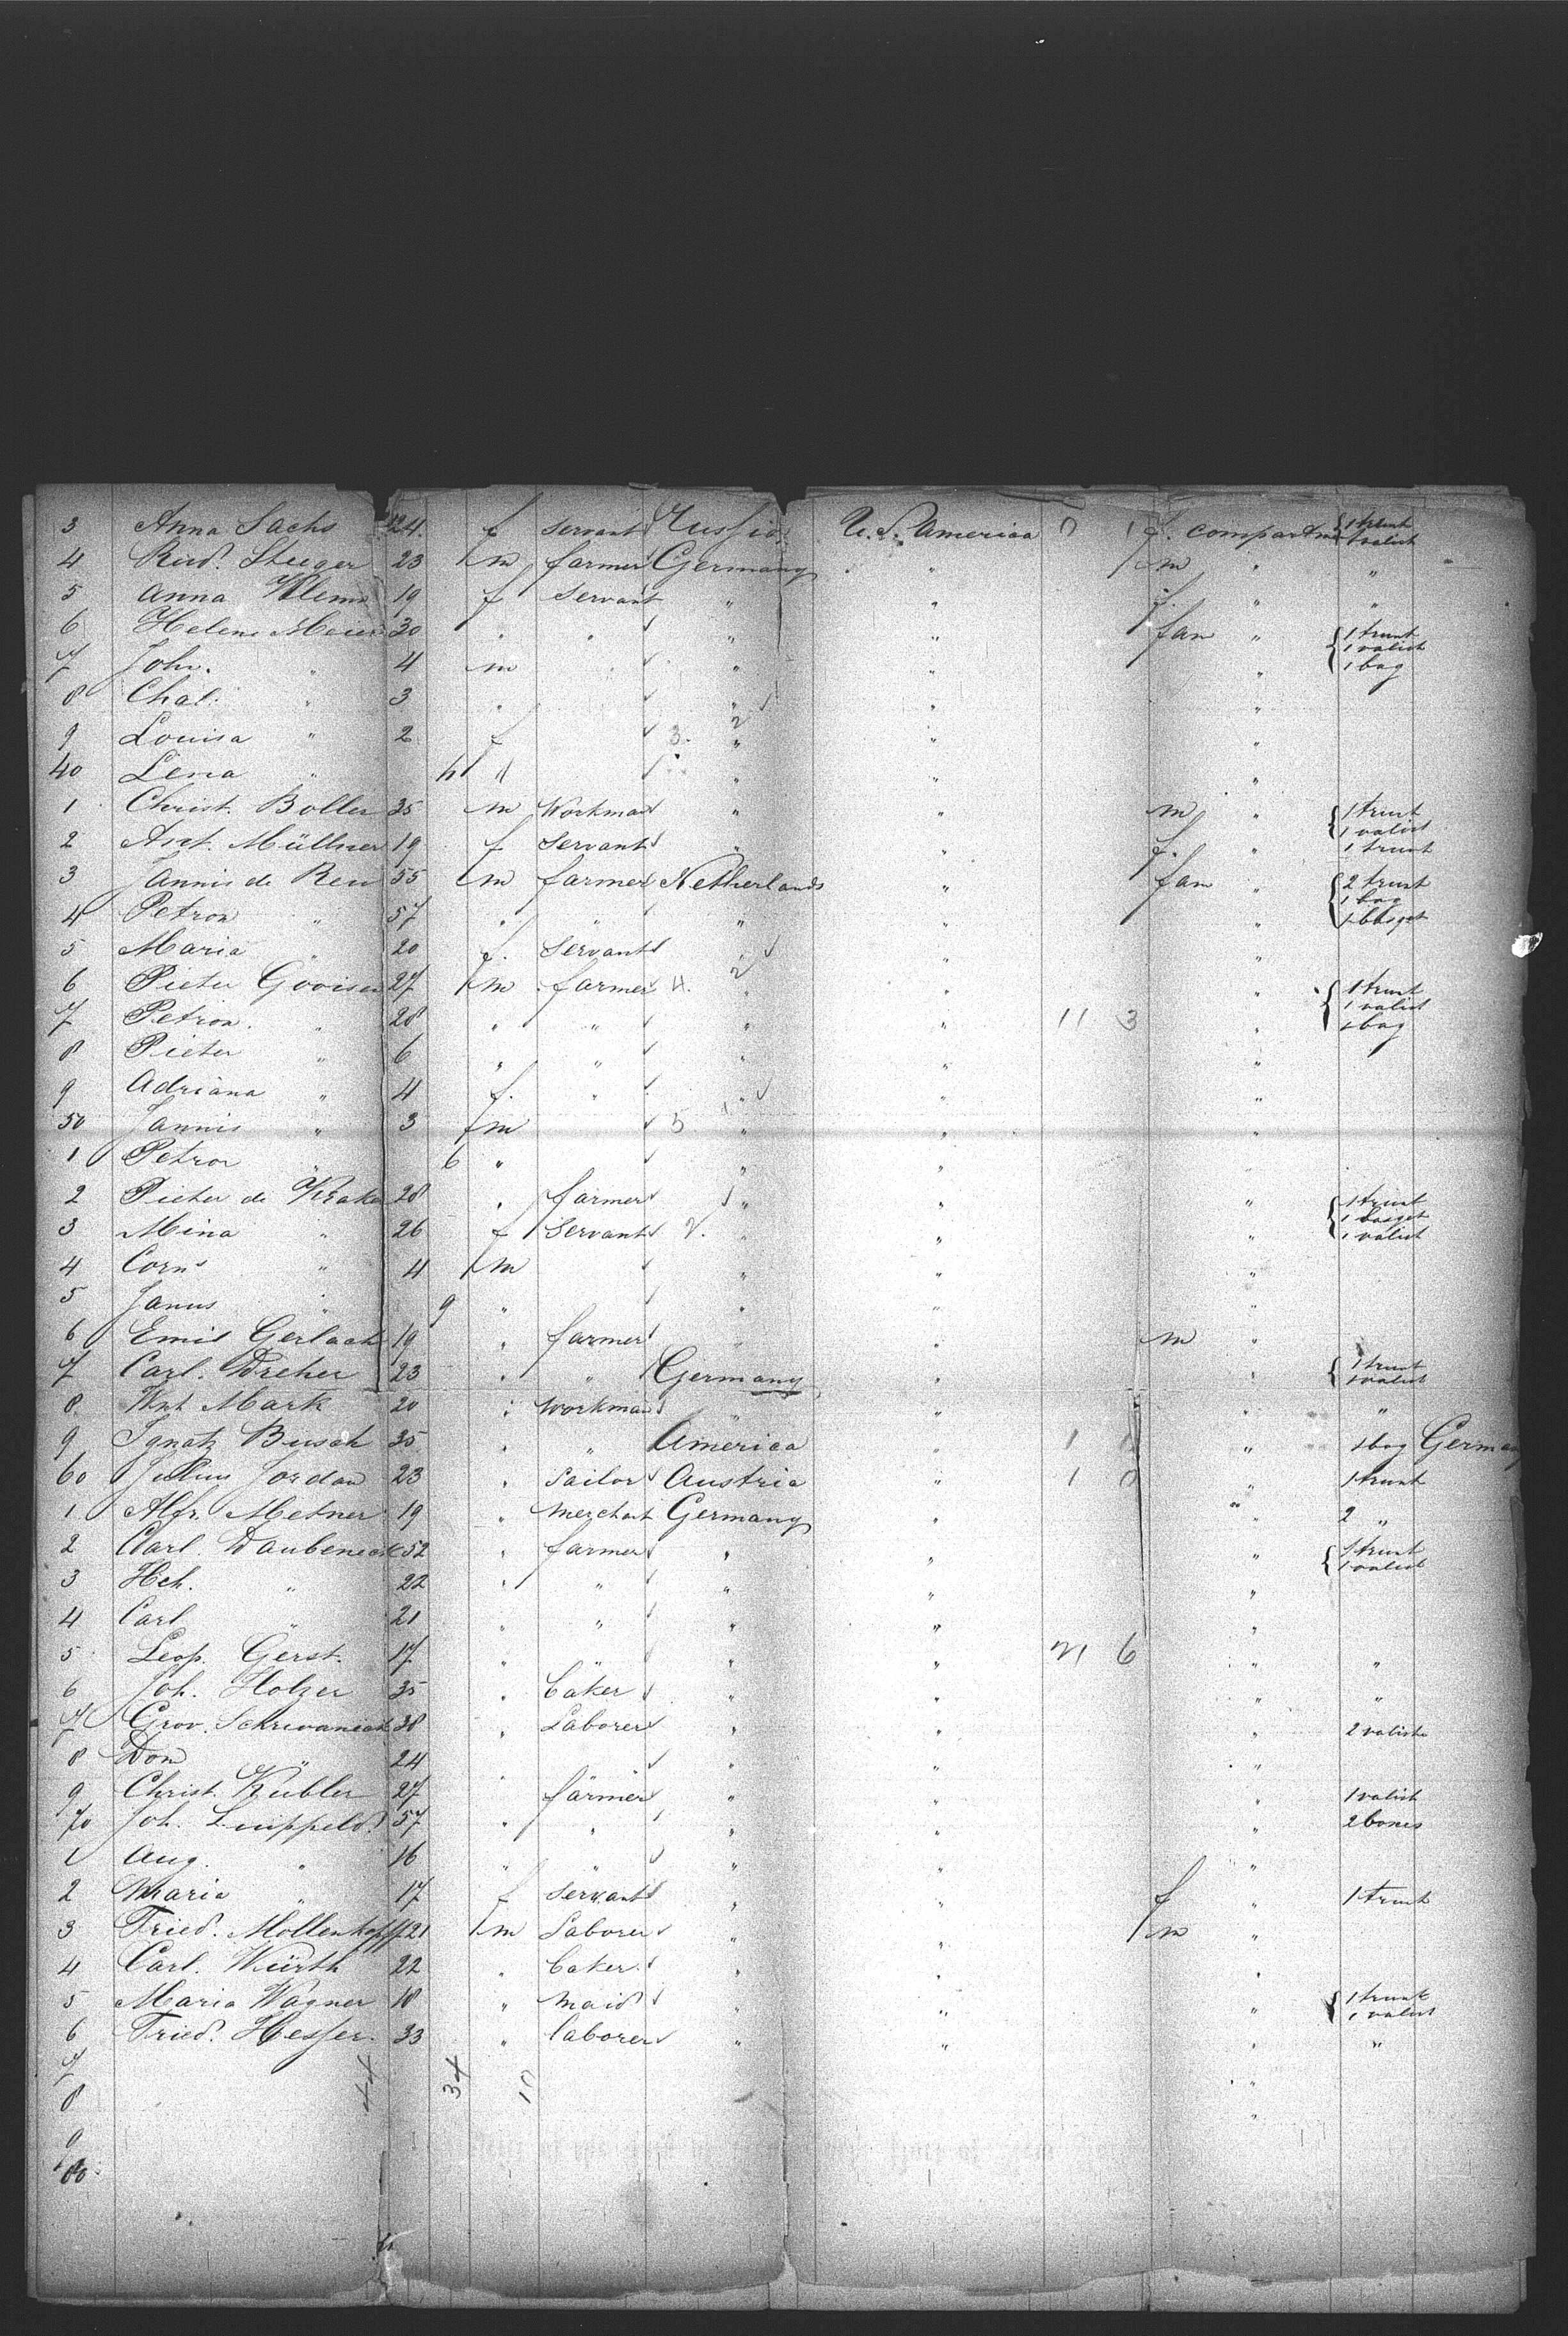 3 Anna Sachs 24. f servant Russia U. S. America 0 1 f. compartm { 1 trunk 1 valist
4 Rud. Steeger 23 m farmer Germany " m " "
5 Anna Klemm 19 f Servant " " f. " "
6 Helene Meier 30 " " " " fam " { 1 trunk 1 valist 1 bag
7 Joh. " 4 m " " "
8 Chal. " 3 " " " "
9 Louisa " 2 f 3. 2 " " "
40 Lena " h " " " "
1 Christ. Boller 35 m Workman " " m " { 1 trunk 1 valist
2 Ant. Müllner 19 f Servant " " f. " 1 trunk
3 Jannis de Reu 55 m farmer Netherlands " fam " { 2 trunk 1 bag 1 basget
4 Petron " 57 " " " " "
5 Maria " 20 f. Servant " " "
6 Pieter Gooisen 27 m farmer 4. 2 " " " { 1 trunk 1 valist 1 bag
7 Petron. " 28 " " " " 11 3 "
8 Pieter " 6 " " " " "
9 Adriana " 4 f. " " " "
50 Jannis " 3 m 5 1 " " "
1 Petror " 6 " " "
2 Pieter de Krake 28 " farmer " " " { 1 trunk 1 basget 1 valist
3 Mina " 26 f Servant 2. " " "
4 Corns " 4 m " " "
5 Janus " 9 " " " "
6 Emil Gerlach 19 " farmer " m "
7 Carl. Dreher 23 " " Germany " " { 1 trunk 1 valist
8. Mark 20 " Workman " " " "
9 Ignatz Busch 35 " " America " 1 " 1 bag Germany
60 Julius Jordan 23 " Sailor Austria " 1 0 " 1 trunk
1 Alfr. Metner 19 " Merchant Germany " " 2 "
2 Carl. Daubeneck 52 " farmer " " " { 1 trunk 1 valist
3 Hch. " 22 " " " " "
4 Carl " 21 " " " " "
5 Leop. Gerst. 17 " " " " 21 6 " "
6 Joh. Holzer 35 " baker " " " "
7 Grov. Schrivaneck 38 " Laborer " " " 2 valist
8 Dom " 24 " " "
9 Christ. Kubler 27 " farmer " " " 1 valist
70 Joh. Luippold 57 " " " " " 2 boxes
1 Aug. " 16 " " " " "
2 Maria " 17 f Servant " " f " 1 trunk
3 Fried. Mollenkopf 21 m Laborer " " m "
4 Carl. Würth 22 " baker. " " "
5 Maria Wagner 18 " maid " " " { 1 trunk 1 valist
6 Fried. Hesser. 33 " laborer " " " "
7 "
8 "
9
80
44 34 10